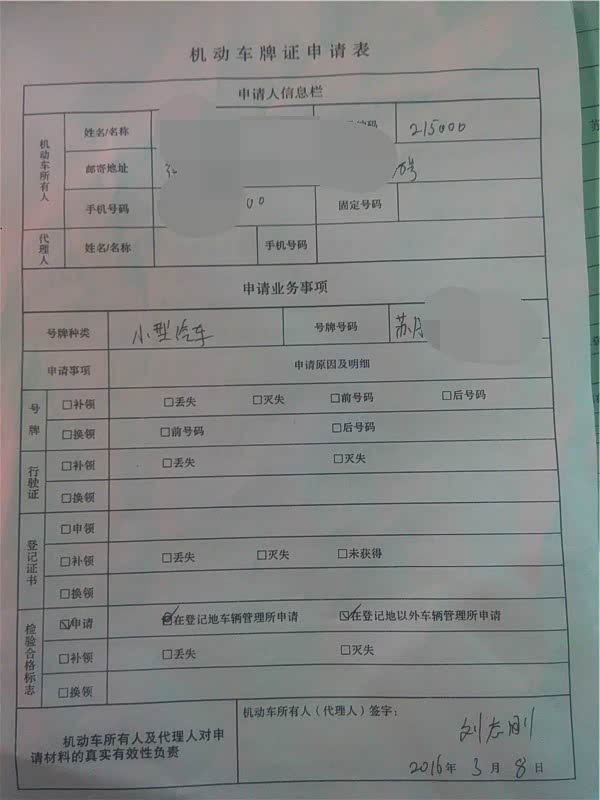 机动车牌证申请表
申请人信息栏
机动车所有人
姓名/名称 编码 215000
邮寄地址 号
手机号码 00 固定号码
代理人 姓名/名称 手机号码
申请业务事项
号牌种类 小型汽车 号牌号码 苏
申请事项 申请原因及明细
号牌
□补领 □丢失 □灭失 □前号码 □后号码
□换领 □前号码 □后号码
行驶证
□补领 □丢失 □灭失
□换领
登记证书
□申领
□补领 □丢失 □灭失 □未获得
□换领
检验合格标志
☑申请 ☑在登记地车辆管理所申请 ☑在登记地以外车辆管理所申请
□补领 □丢失 □灭失
□换领
机动车所有人及代理人对申
请材料的真实有效性负责
机动车所有人(代理人)签字:
刘志刚
2016年 3月 8日